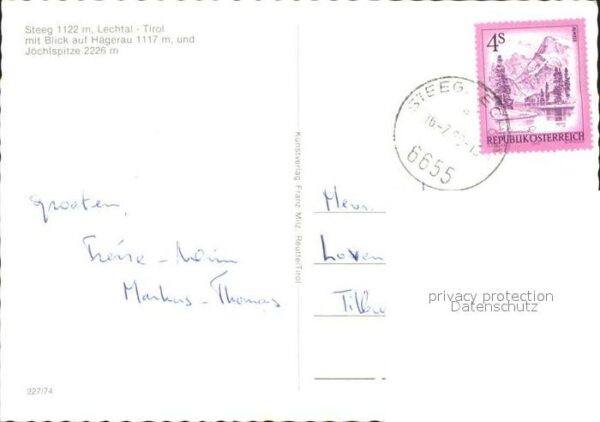 Steeg 1122 m, Lechtal - Tirol
mit Blick auf Hägerau 1117 m, und
Jöchlspitze 2226 m
4S
REPUBLIK ÖSTERREICH
STEEG
6655
Kunstverlag Franz Milz, Reutte/Tirol
Groeten,
Markus - Thomas
Mevr.
Loven
Tilbu
privacy protection
Datenschutz
227/74